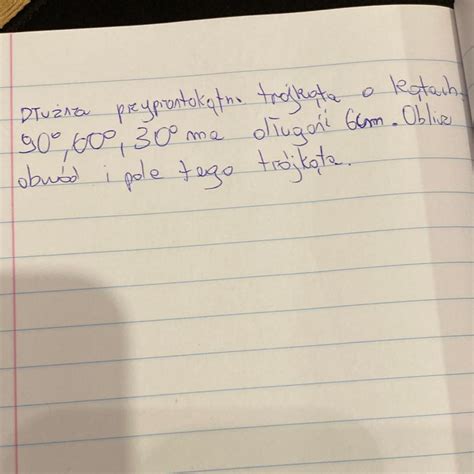 Dłuższa przyprontokątna trójkąta o kątach.
90°, 60°, 30° ma długość 6cm. Oblicz
obwód i pole tego trójkąta.